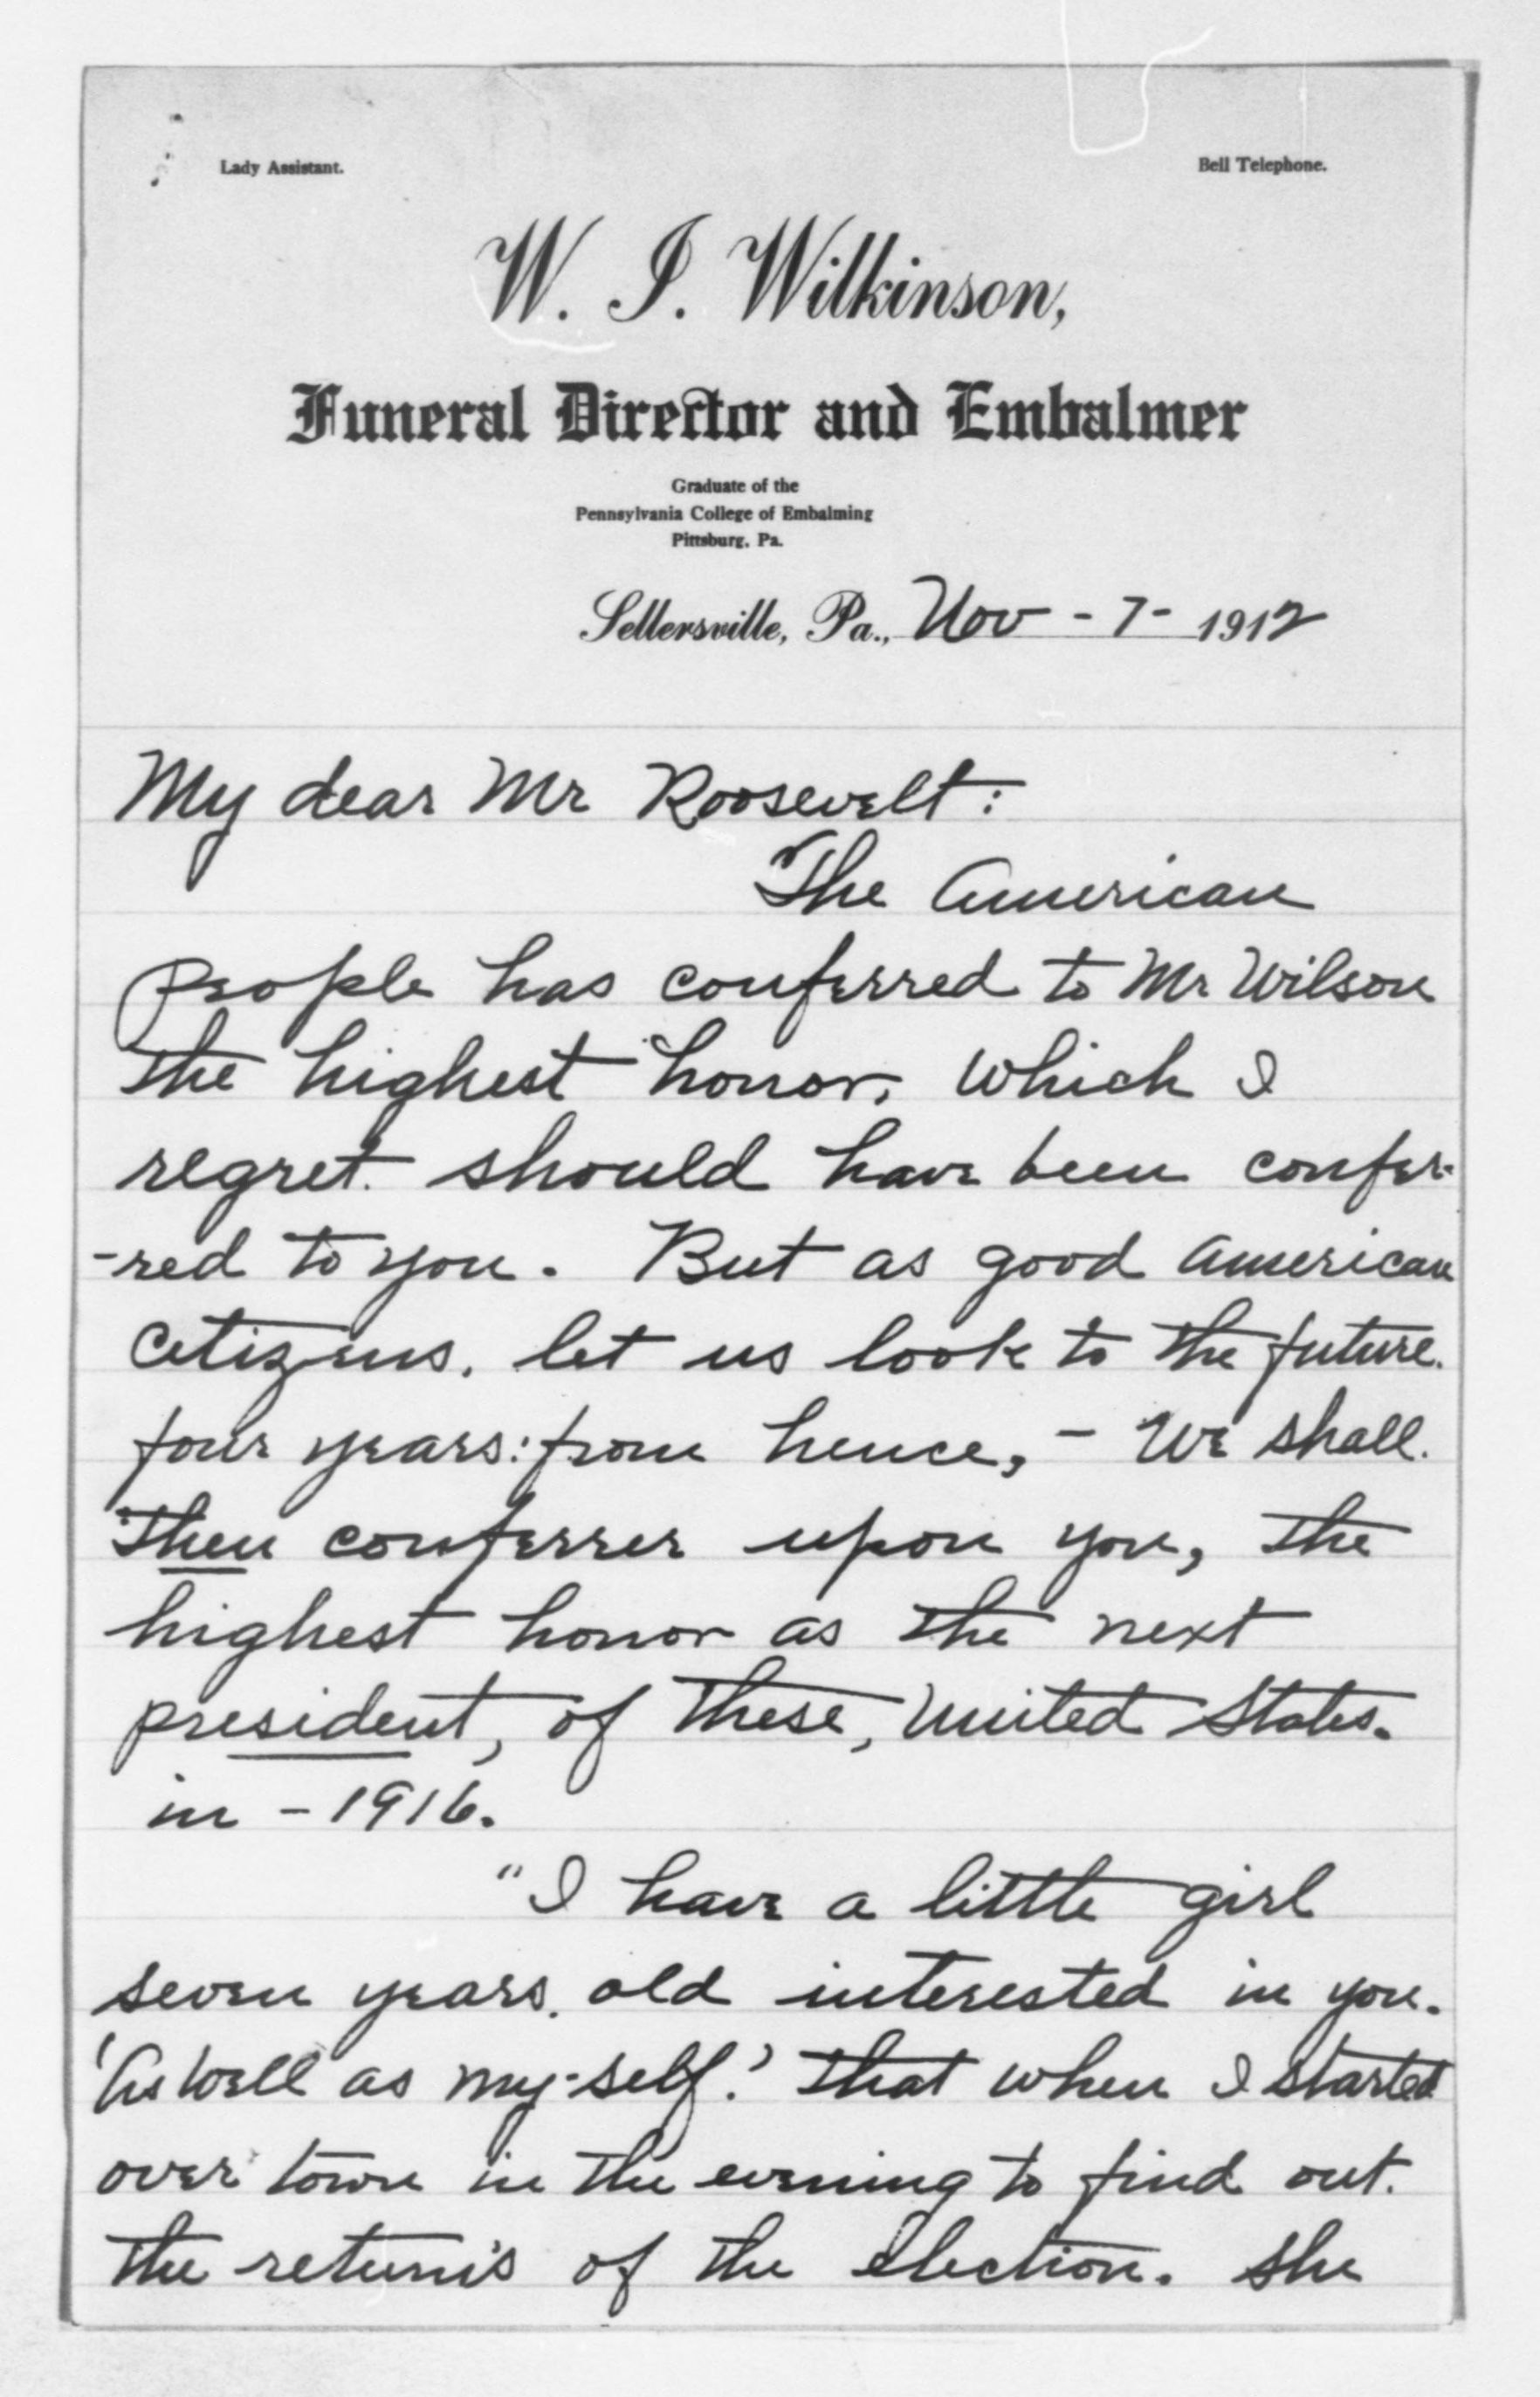 Lady Assistant.
Bell Telephone.
W. I. Wilkinson,
Funeral Director and Embalmer
Graduate of the
Pennsylvania College of Embalming
Pittsburg, Pa.
Sellersville, Pa., Nov - 7 - 1912
My dear Mr Roosevelt:
The American
people has conferred to Mr Wilson
the highest honor, which I
regret. should have been confer-
-red to you. But as good American
Citizens, let us look to the future.
four years: from hence, - We shall.
then conferrer upon you, the
highest honor as the next
president, of these, United States.
in - 1916.
"I have a little girl
seven years. old interested in you.
'As well as my-self.' that when I started
over town in the evening to find out.
the return's of the election. she